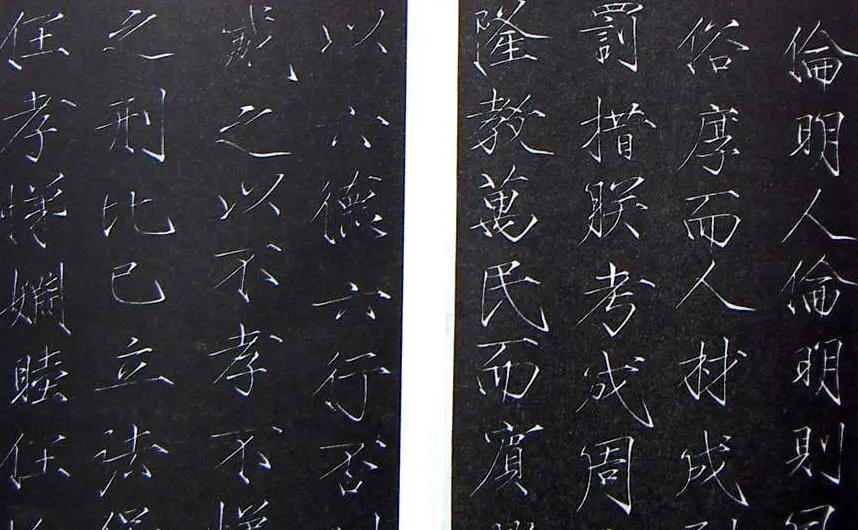 倫明人倫明則
俗厚而人材成
罰措朕考成周
隆教萬民而賓
以六德六行否
威之以不孝不
之刑比已立法
任孝悌婣睦任